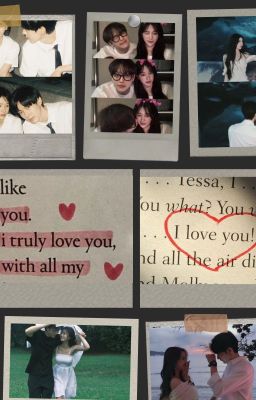 like
you.
i truly love you,
with all my
. . . . Tessa, I . .
You what? You w
. . . I love you!
nd all the air di